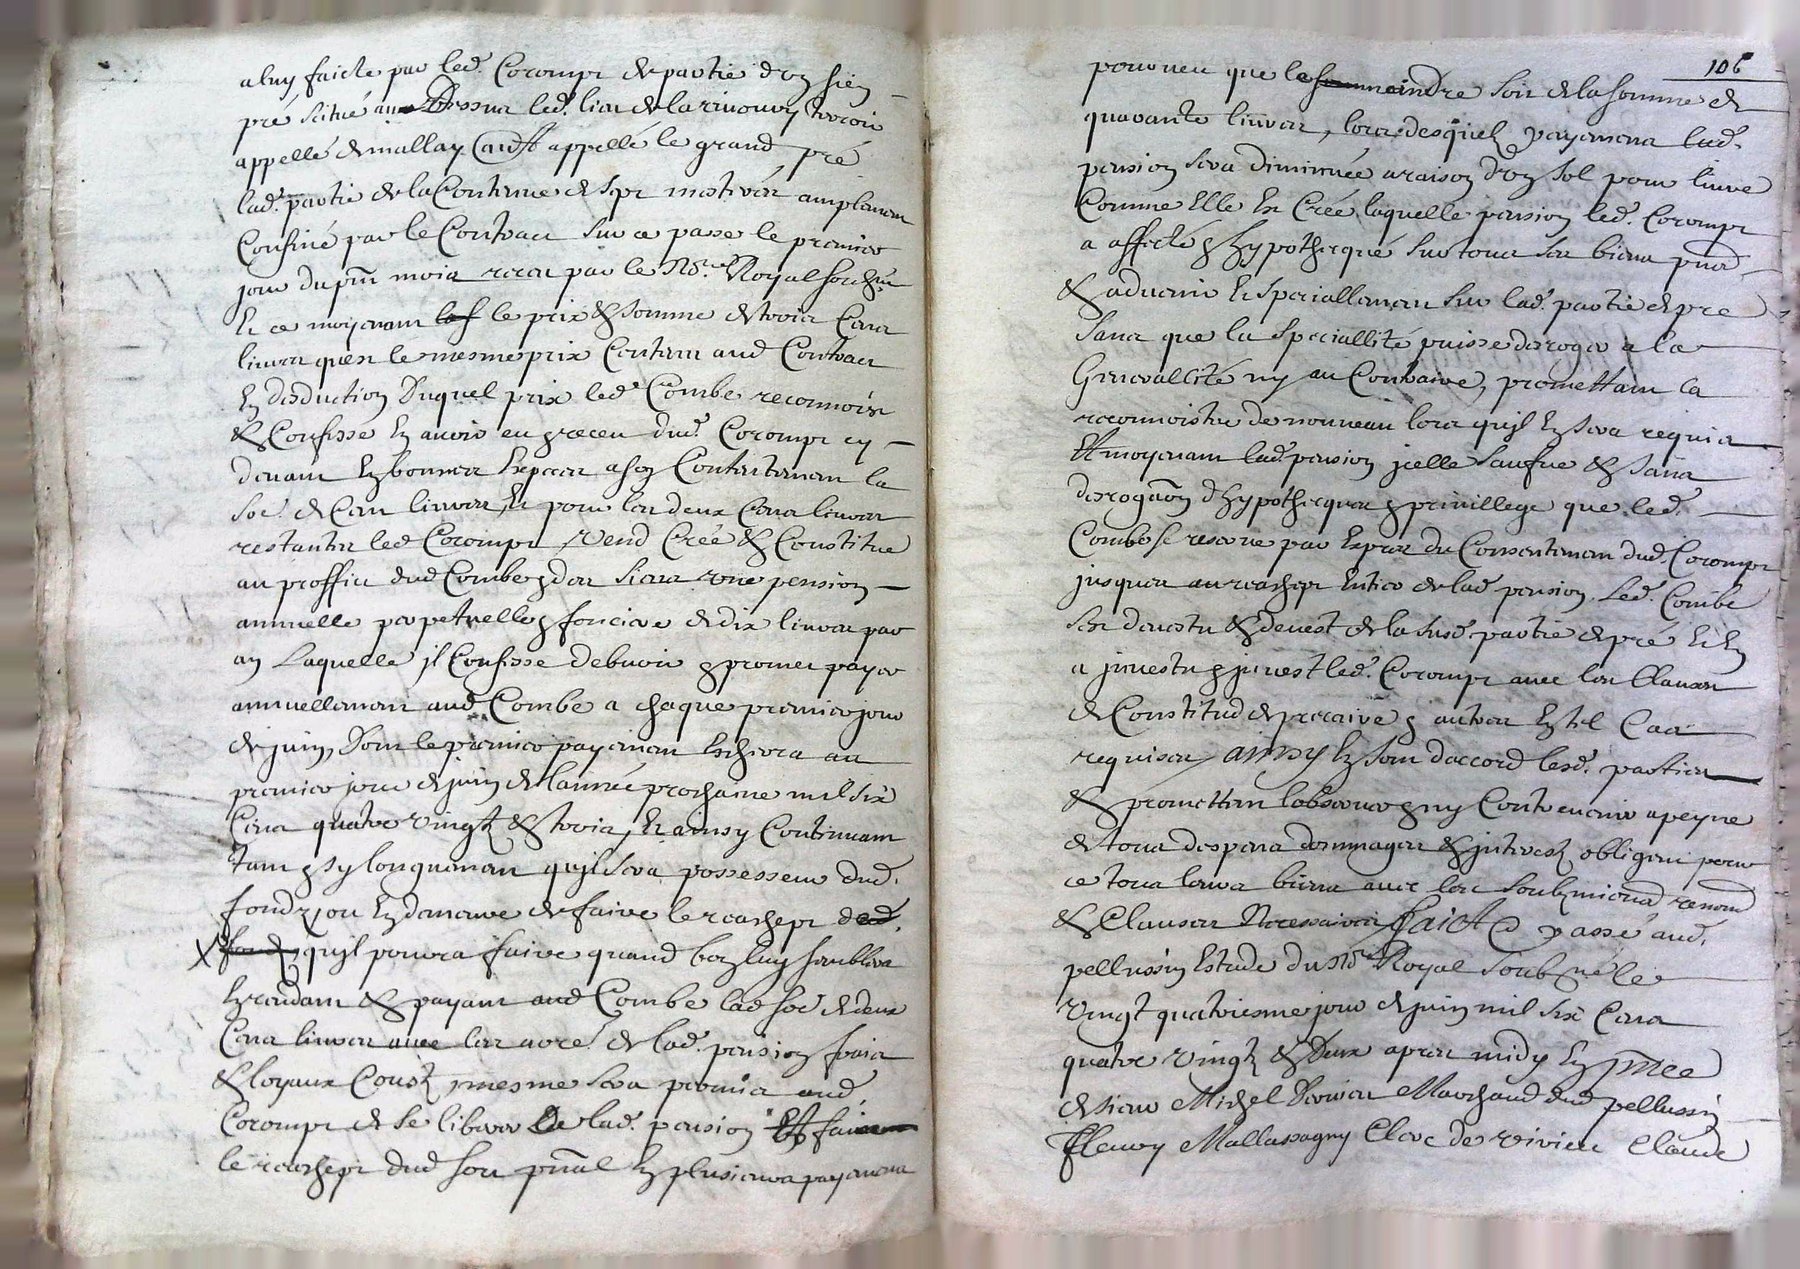 a luy faicte par led. Corompt de partie d'un sien
pré scitué au dessus led. lieu de la rivoury terroir
appellé de mallay Cauft appellé le grand pré
lad. partie de la Contenue de sept mestiers amplement
Confiné par le Contract sur ce passe le premier
jour du pnt mois receu par le No.re Royal soubz.né
Et ce moyenant le prix & somme de trois Cens
livres quest le mesme prix Contenu aud Contract
En deduction Duquel prix led. Combe reconnoist
& Confesse En avoir eu & receu dud. Corompt cy
devant En bonnes Especes a son Contentement la
so.e de Cent livres, Et pour les deux Cens livres
restantes led Corompt, vend Créé & Constitue
au proffict dud Combe & des siens une pension
annuelle perpetuelle & fonciere de dix livres par
an Laquelle jl Confesse debvoir & promet payer
annuellement aud Combe a chaque premier jour
de juin, Dont le premier payement Escherra au
premier jour de juin de l'année prochaine mil six
Cens quatre vingtz & trois, Et ainsy Continuant
tant & sy longuement qu'jl sera possesseur dud.
fondz, ou En demeure de faire le reachept ded.
X qujl pourra faire quand bon luy semblera
En rendant & payant aud Combe lad so.e de deux
Cens livres avec les arré. de lad. pension frais
& loyaux Coustz mesme sera promis aud.
Corompt de se liberer De lad. pension Et faire
le reachept dud sort pnal En plusieurs payemens
106
pourveu que le moindre soit de la somme de
quarante livres, lors desquelz payemens lad.
pension sera diminuée a raison d'un sol pour livre
Comme Elle Est Créé, laquelle pension led. Corompt
a affecté & hypothecqué sur tous ses biens pns
& advenir Et speciallement sur lad. partie de pre
sans que la speciallité puisse deroger a la
Generallité ny au Contraire, promettant la
reconnoistre de nouveau lors qu'jl En sera requis
Et moyenant lad. pension jcelle saufve & sans
derogaon d'hypothecques & privillege que led.
Combe se reserve par Expres du Consentement dud Corompt
jusques au reachept Entier de lad. pension, Led. Combe
s'est devestu & devest de la susd. partie de pré Et En
a jnvestu & jnvest led. Corompt avec les Clauses
de Constitud de precaire & autres En tel Cas
requises, ainsy En sont d'accord lesd. parties
& promettent l'observer & ny Contrevenir a peyne
de tous despens dommages & jnterestz obligent pour
ce tous leurs biens avec les soubzmions renons
& Clauses Necessaires, faict & passé aud.
pellussin Estude du No.re Royal soubz.né le
vingt quatriesme jour de juin mil six Cens
quatre vingtz & deux apres midy En pnce
de sieur Michel Marchand dud pellussin
ffleury Mallassagny Clerc de Claude